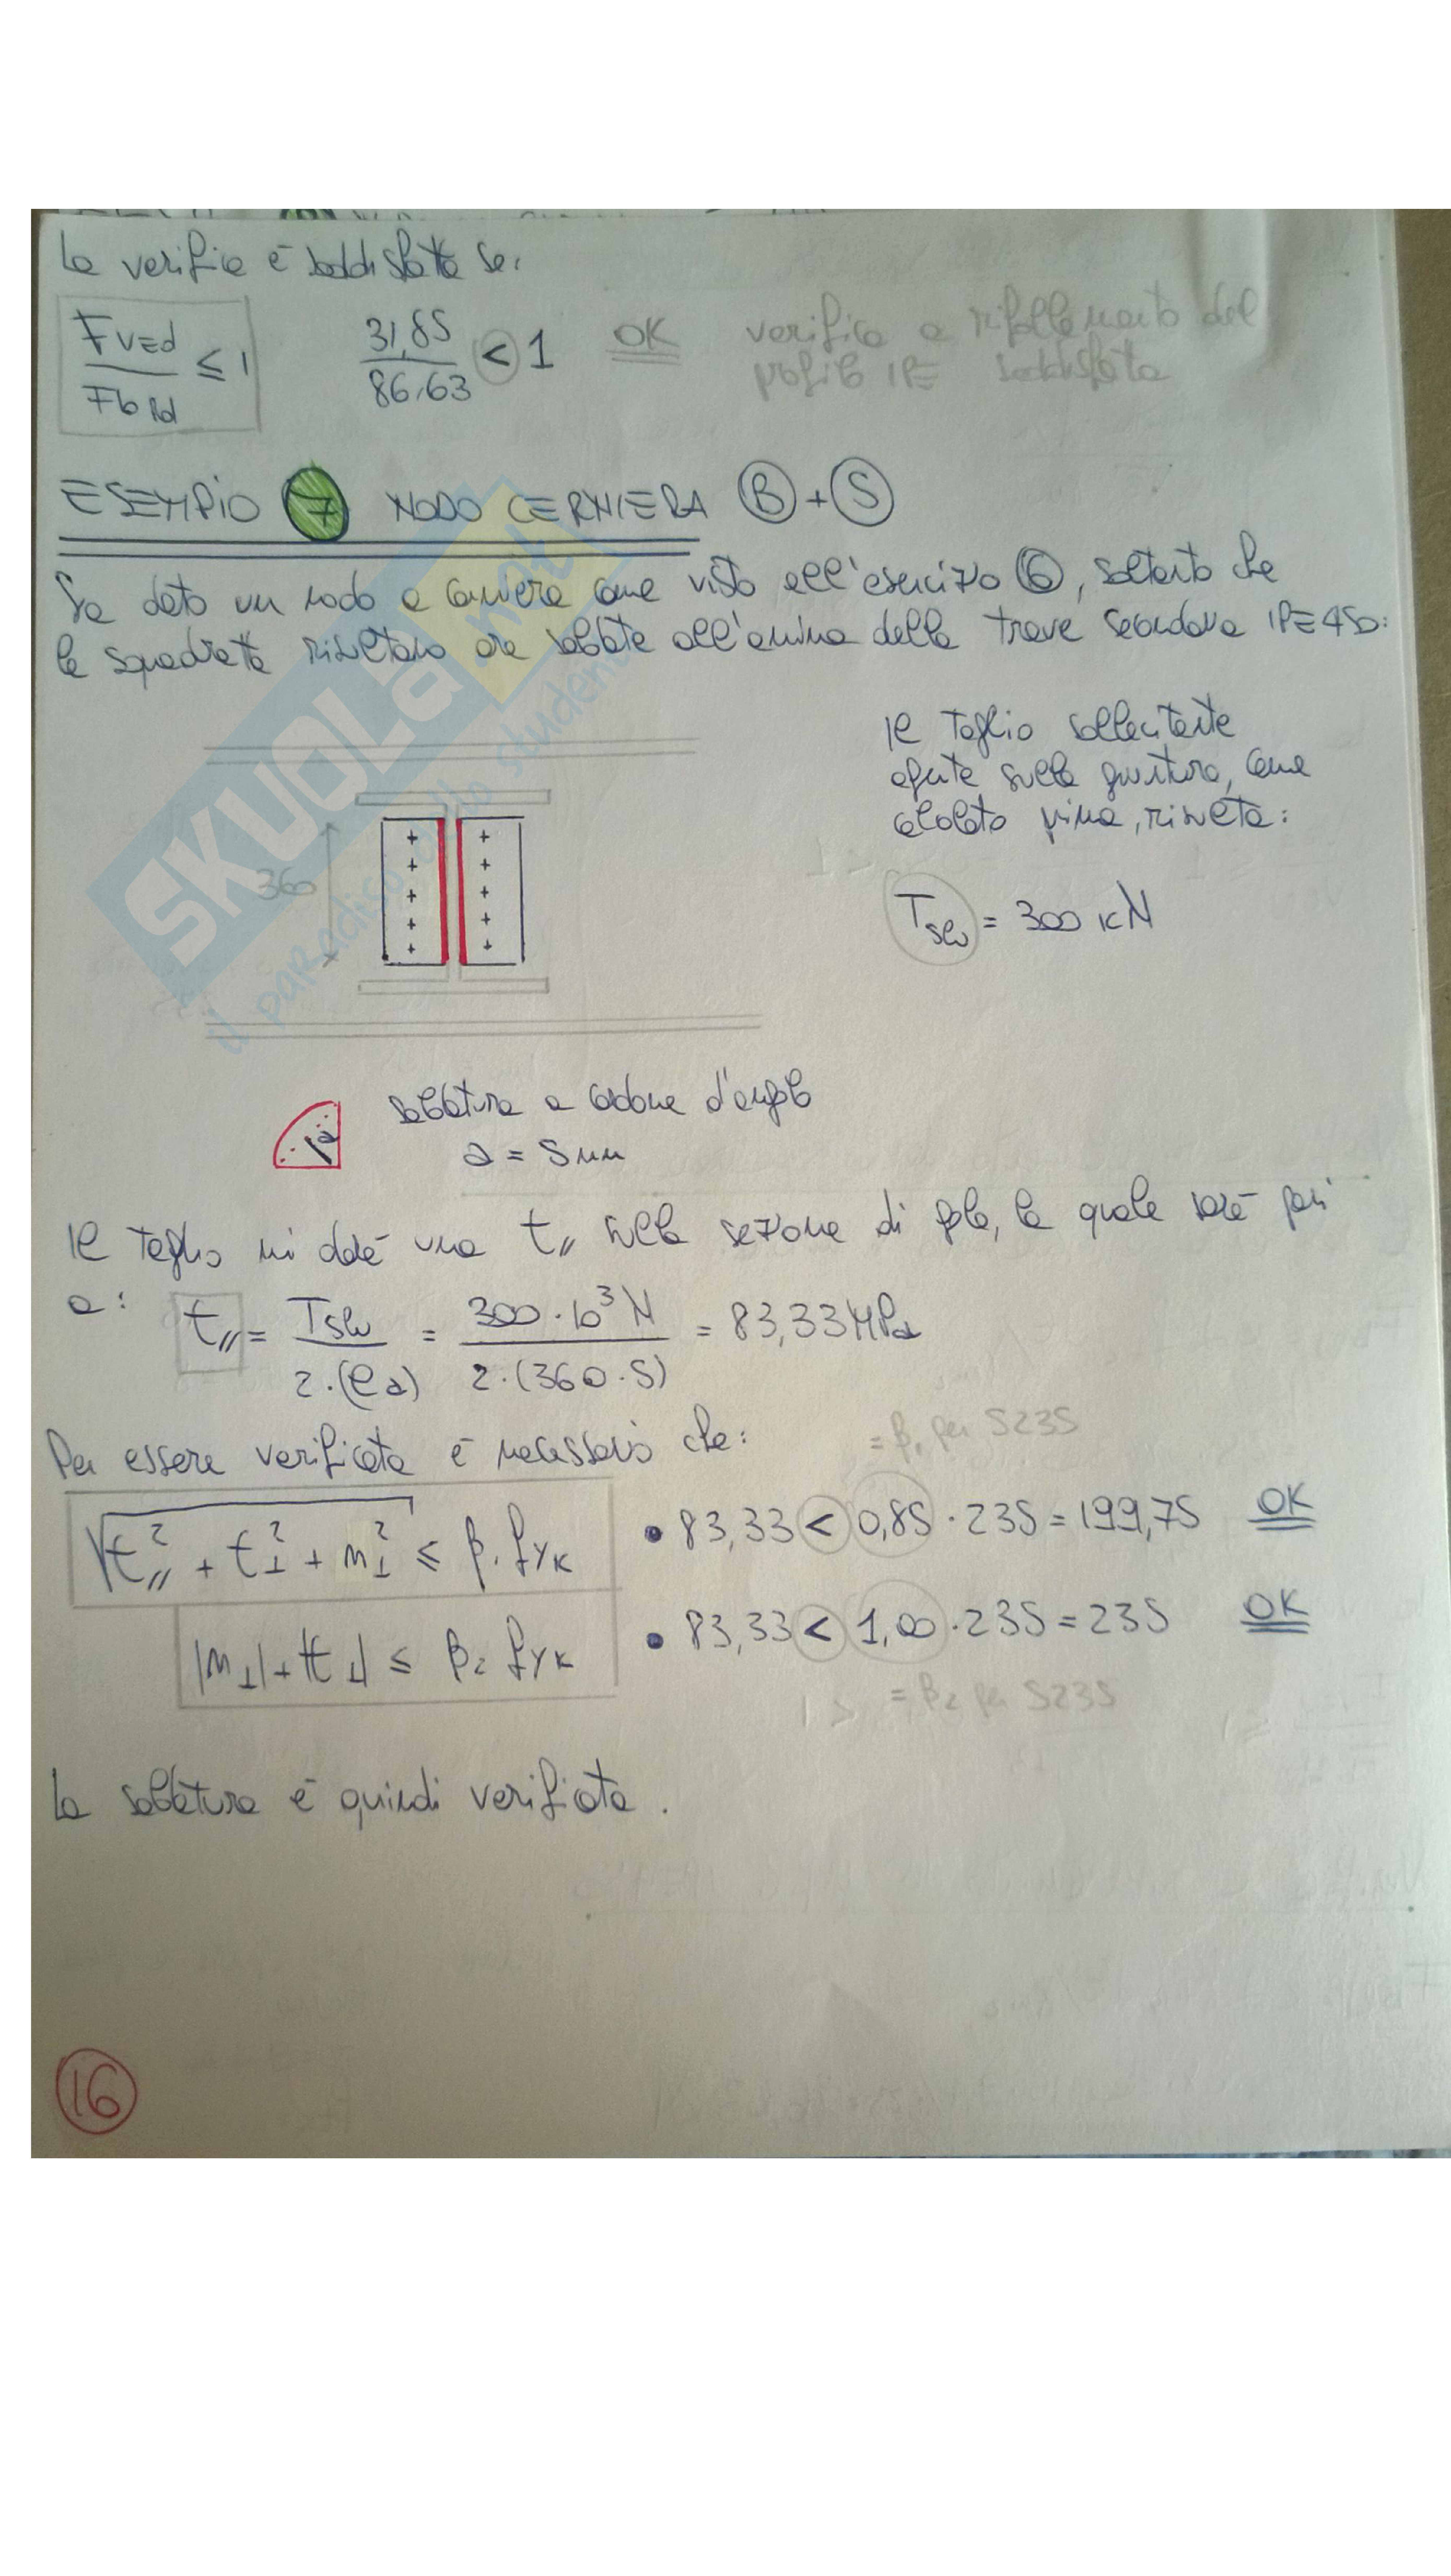 la verifica è soddisfatta se:
FvEd / FbRd ≤ 1   31,85 / 86,63 < 1   OK   verifica a rifollamento del
profilo IPE soddisfatta
ESEMPIO 7 NODO CERNIERA B + S
Sia dato un nodo a cerniera come visto all'esercizio 6, soltanto che
le squadrette risultano ora saldate all'anima della trave secondaria IPE 450:
Il taglio sollecitante
agente sulla giuntura, come
calcolato prima, risulta:
360
Tslu = 300 kN
SKUOLA.net
il paradiso dello studente
saldatura a cordone d'angolo
a
a = 5 mm
Il taglio mi darà una t// nella sezione di gola, la quale sarà pari
a: t// = Tslu / 2·(ℓa) = 300·10³ N / 2·(360·5) = 83,33 MPa
Per essere verificata è necessario che:
= β1 per S235
√(t//² + t⊥² + n⊥²) ≤ β1 fyk   • 83,33 < 0,85 · 235 = 199,75   OK
|n⊥| + |t⊥| ≤ β2 fyk   • 83,33 < 1,00 · 235 = 235   OK
= β2 per S235
La saldatura è quindi verificata.
16